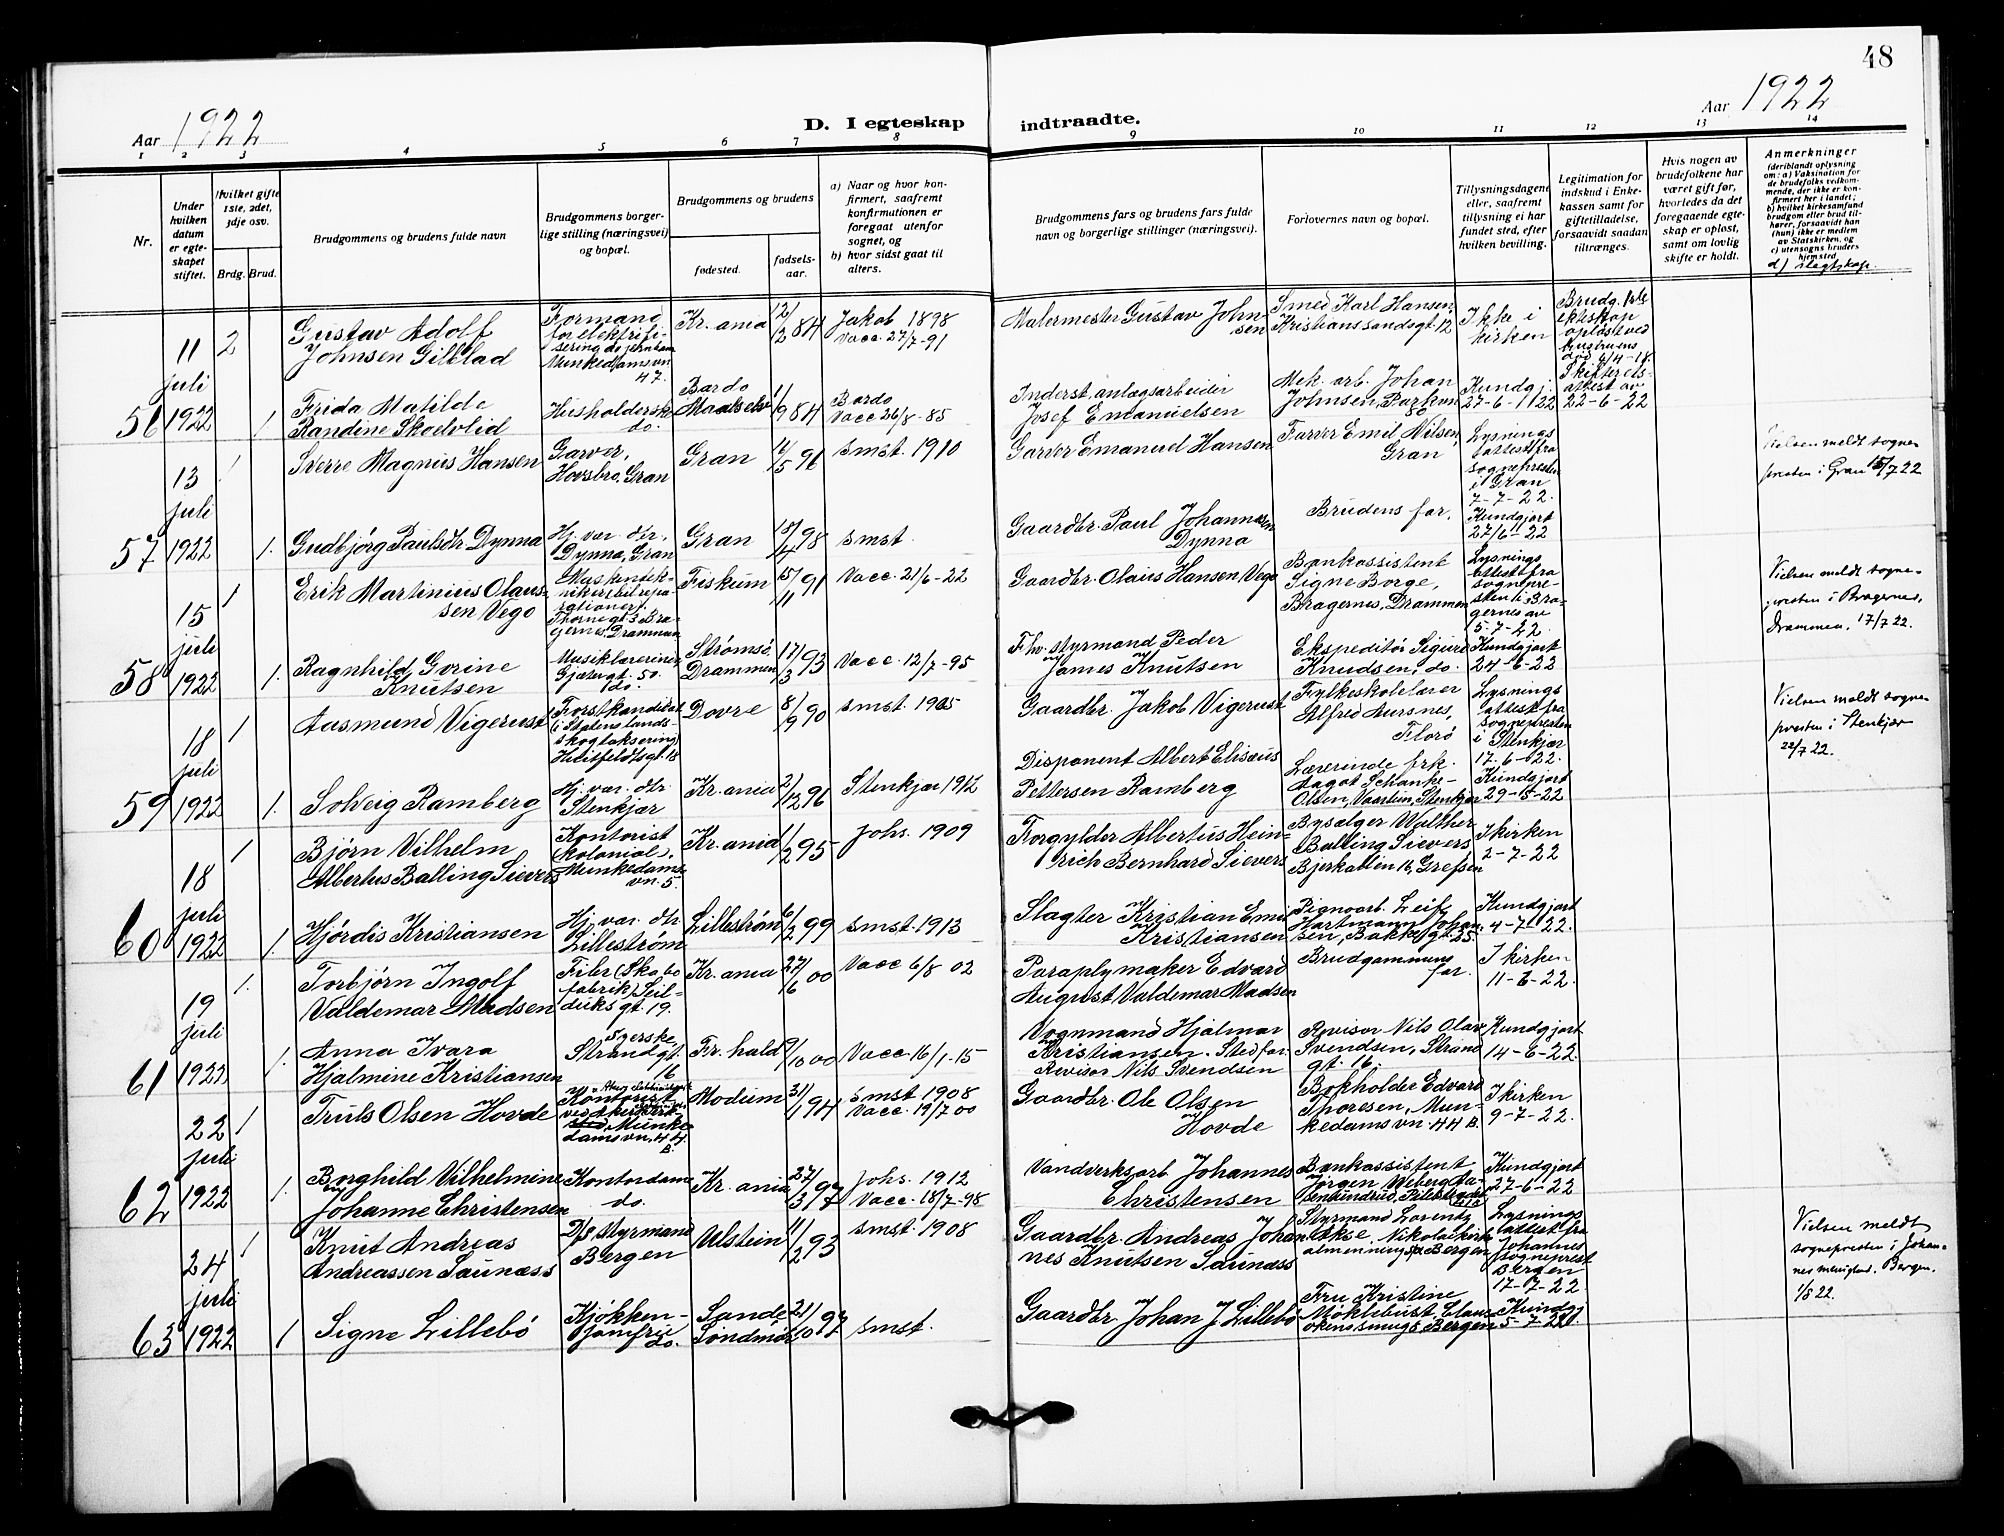 48
Aar 1922
D. I egteskap
indtraadte.
Aar 1922
1 2 3 4 5 6 7 8 9 10 11 12 13 14
Nr.
Under hvilken datum er egteskapet stiftet.
Hvilket gifte 1ste, 2det, 3dje osv.
Brdg. Brud.
Brudgommens og brudens fulde navn
Brudgommens borgerlige stilling (næringsvei) og bopæl.
Brudgommens og brudens
fødested.
fødselsaar.
a) Naar og hvor konfirmert, saafremt konfirmationen er foregaat utenfor sognet, og
b) hvor sidst gaat til alters.
Brudgommens fars og brudens fars fulde navn og borgerlige stillinger (næringsvei).
Forlovernes navn og bopæl.
Tillysningsdagene eller, saafremt tillysning ei har fundet sted, efter hvilken bevilling.
Legitimation for indskud i Enkekassen samt for giftetilladelse, forsaavidt saadan tiltrænges.
Hvis nogen av brudefolkene har været gift før, hvorledes da det foregaaende egteskap er opløst, samt om lovlig skifte er holdt.
Anmerkninger (deriblandt oplysning om: a) Vaksination for de brudefolks vedkommende, der ikke er konfirmert her i landet; b) hvilket kirkesamfund brudgom eller brud tilhører, forsaavidt han (hun) ikke er medlem av Statskirken, og c) utensogns bruders hjemsted
d) slegtskap.
56
11 juli 1922
2
Gustav Adolf Johnsen Gilblad
Formand for elektrifisering
Munkedamsvn 47.
Kr.ania
12/2 84
Jakob 1898
Vacc. 27/7-91
Malermester Gustav Johnsen
Smed Karl Hansen, Kristianssandsgt. 12
Ikke i kirken
Brudg. 1ste ekteskap opløst ved hustruens død 6/4-18. Skifteretsattest av 22-6-22
1.
Frida Matilde Randine Skodvlid
Husholdersk. do.
Bardo Maalselv
1/9 84
Bardo
Vacc. 26/8-85
Inderst, anlægsarbeider Josef Emanuelsen
Mek. arb. Johan Johnsen, Parkvn 80
Kundgj. 27-6-1922
57
13 juli 1922
1
Sverre Magnus Hansen
Garver, Hovsbro, Gran
Gran
16/5 96
smst. 1910
Garver Emanuel Hansen
Farver Emil Nilsen, Gran
Lysningsattest fra sognepresten i Gran 7-7-22.
Vielsen meldt sognepresten i Gran 15/7 22
1.
Gudbjørg Paulsdtr. Dynna
Hj. vær. dtr., Dynna, Gran
Gran
18/4 98
smst.
Gaardbr. Paul Johannesen Dynna
Brudens far.
Kundgjort 27/6-22
58
15 juli 1922
1
Erik Martinius Olaussen Vego
Thornegt. 3 Bragernes, Drammen
Fiskum
15/11 91
Vacc. 21/6-22
Gaardbr. Olaus Hansen Vego
Bankassistent Signe Borge, Bragernes, Drammen
Lysningsattest fra sognepresten i Bragernes av 5-7-22.
Vielsen meldt sognepresten i Bragernes, Drammen, 17/7 22.
1.
Ragnhild Gorine Knutsen
Musiklærerinde, Gjetergt. 50. do.
Strømsø, Drammen
17/3 93
Vacc. 12/7-95
Fhv. styrmand Peder James Knutsen
Ekspeditør Sigurd Knudsen, do.
Kundgjort 24-6-22
59
18 juli 1922
1
Aasmund Vigerust
Forstkandidat (i Statens landsskogtaksering) Huitfeldtsgt. 18
Dovre
8/9 90
smst. 1905
Gaardbr. Jakob Vigerust
Fylkeskolelærer Alfred Aursnes, Florø
Lysningsattest fra sognepresten i Stenkjær 17-6-22.
Vielsen meldt sognepresten i Stenkjær 22/7 22.
1.
Solveig Ramberg
Hj. vær. dtr. Stenkjær
Kr.ania
2/12 96
Stenkjær 1912
Disponent Albert Elisæus Pettersen Ramberg
Lærerinde frk. Aagot Schanke-Olsen, Vaartun, Stenkjær
Kundgjort 29-5-22
60
18 juli 1922
1
Bjørn Vilhelm Albertus Balling Sievers
Kontorist (kolonial). Munkedamsvn. 5.
Kr.ania
1/2 95
Johs. 1909
Forgylder Albertus Heinrich Bernhard Sievers
Bysælger Walther Balling Sievers Bjerkealléen 16, Grefsen
I kirken 2-7-22
1.
Hjørdis Kristiansen
Hj. vær. dtr. Lillestrøm
Lillestrøm
6/2 99
smst. 1913
Slagter Kristian Emil Kristiansen
Pianoarb. Leif Hartmann Johansen, Bakkegt. 25.
Kundgjort 4-7-22.
61
19 juli 1922
1.
Torbjørn Ingolf Valdemar Madsen
Filer (Skabo fabrik) Seilduksgt. 19.
Kr.ania
27/6 00
Vacc 6/8 02
Paraplymaker Edvard August Valdemar Madsen
Brudgommens far.
I kirken 11-6-22.
1.
Anna Ivara Hjalmine Kristiansen
Syerske, Strandgt. 16
Fr.hald
9/10 00
Vacc 16/1-15
Vognmand Hjalmar Kristiansen. Stedfar. Revisor Nils Svendsen
Revisor Nils Olav Svendsen, Strandgt. 16.
Kundgjort 14-6-22.
62
22 juli 1922
1
Truls Olsen Hovde
Kontorist
Munkedamsvn. 44 B.
Modum
31/1 94
smst 1908
Vacc. 19/7 00
Gaardbr. Ole Olsen Hovde
Bokholder Edvard Thoresen, Munkedamsvn. 44 B.
I kirken 9-7-22.
1.
Borghild Vilhelmine Johanne Christensen
Kontordame do.
Kr.ania
27/3 97
Johs. 1912
Vacc. 18/7-98
Vandverksarb Johannes Christensen
Bankassistent Jørgen Weberg
Kundgjort 27-6-22
63
24 juli 1922
1
Knut Andreas Andreassen Saunæss
D/s Styrmand Bergen
Ulstein
11/2 93
smst. 1908
Gaardbr. Andreas Johannes Knutsen Saunæss
Styrmand Lorentz Akse, Nikolaikirkealmenning, Bergen
Lysningsattest fra Johannes sogneprest Bergen 17-7-22.
Vielsen meldt sognepresten i Johannes menighed, Bergen, 1/8 22.
1
Signe Lillebø
Kjøkkenjomfru do.
Sande Søndmør
21/10 97
smst.
Gaardbr Johan J Lillebø
Fru Kristine Møklebust, Bergen
Kundgj 5-7-22